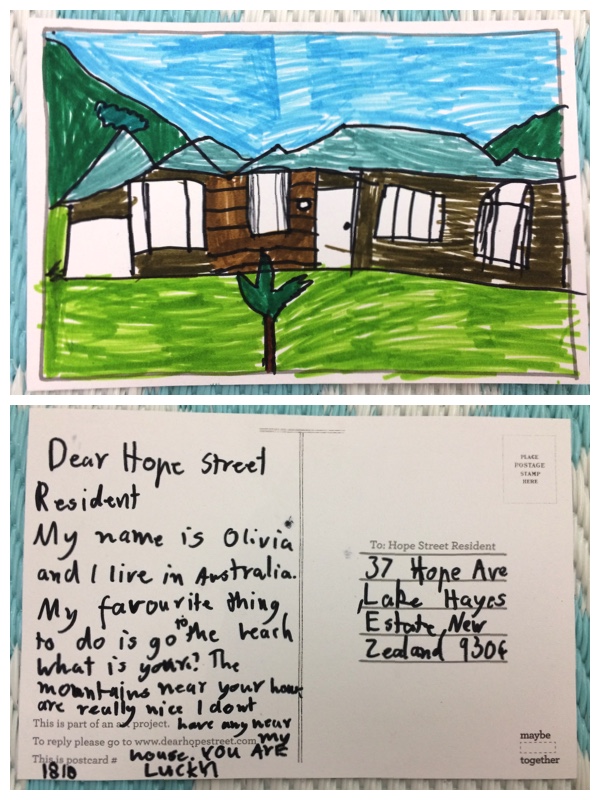 Dear Hope Street
Resident
My name is Olivia
and I live in Australia.
My favourite thing
to do is go to the beach
What is yours? The
mountains near your house
are really nice I dont
This is part of an art project. have any near
To reply please go to www.dearhopestreet.com my
This is postcard # house. YOU ARE
1810 LUCKY
PLACE
POSTAGE
STAMP
HERE
To: Hope Street Resident
37 Hope Ave
Lake Hayes
Estate, New
Zealand 9304
maybe
together